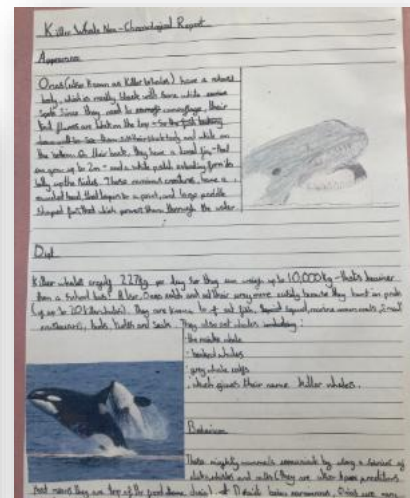 Killer Whale Non-Chronological Report
Appearance
Orcas (also known as Killer Whales) have a robust
body, which is mostly black with some white
spots. Since they need to camouflage, their
the top
the bottom. On their back, they have a dorsal fin - that
can grow up to 2m - and a white patch extending from its
belly up the sides. These enormous creatures, have a
rounded head that tapers to a point, and large paddle
shaped fins that which powers them through the water
Diet
Killer whales 227kg per day so they can weigh up to 10,000kg - that's heavier
than a school bus! Also, Orcas catch and eat their prey more easily because they hunt in pods
(of up to 20 killer whales). They are known to eat fish, squid, marine mammals,
and seals. They also eat whales including:
· the minke whale
· grey whale calfs
· which gives their name killer whales.
Behaviour
These mighty mammals communicate by using a series of
clicks, whistles and calls (they are also apex predators
that means they are top of the food chain).